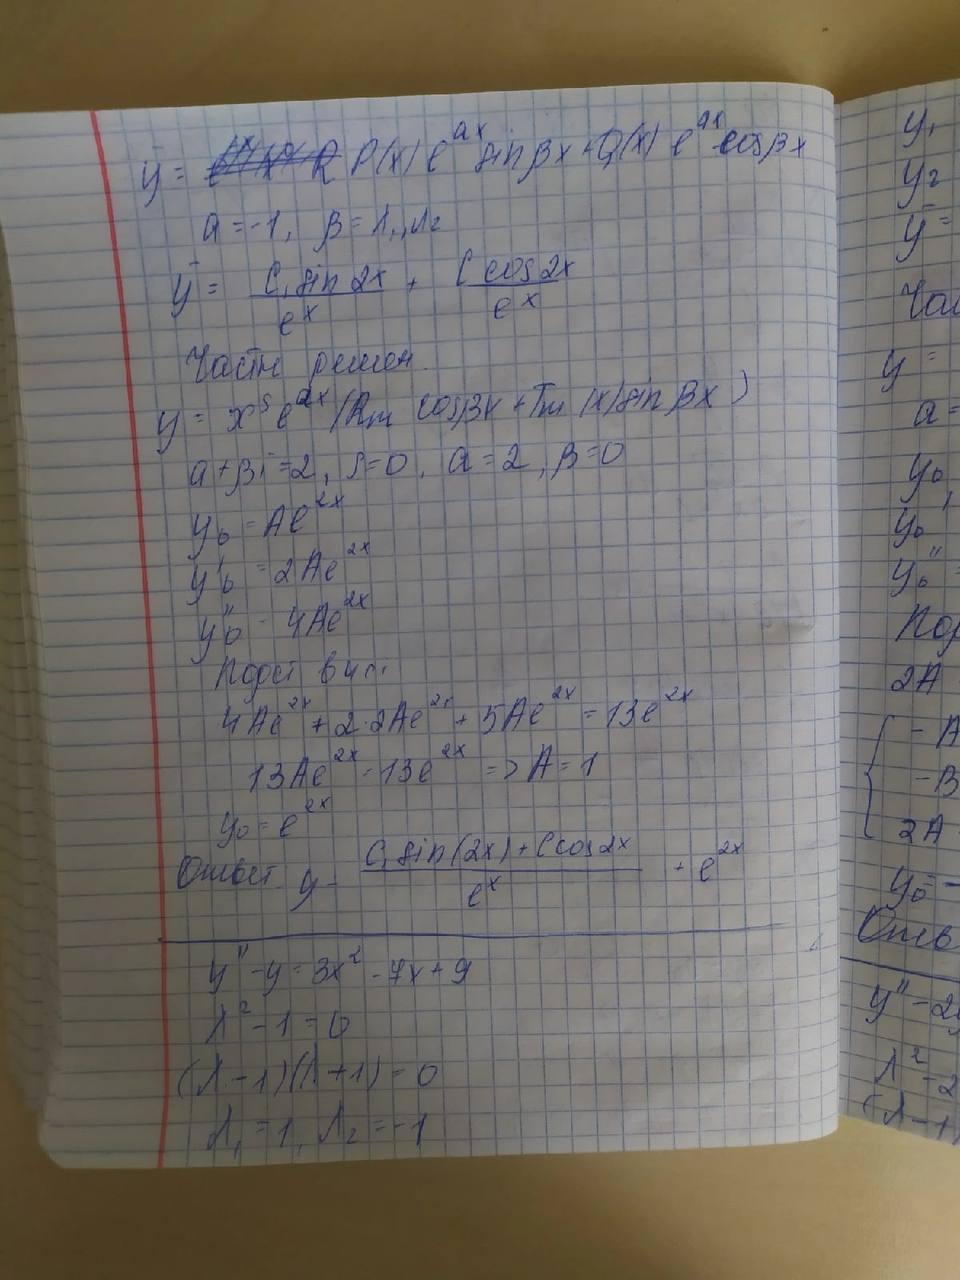 ȳ = P(x) e^{ax} sin βx + Q(x) e^{ax} cos βx
a = -1, β = λ₁, λ₂
ȳ = \frac{C₁ sin 2x}{e^x} + \frac{C cos 2x}{e^x}
Частн решен.
y = x^s e^{ax} (Rm cos βx + Tm (x) sin βx)
a + βi = 2, s = 0, a = 2, β = 0
y₀ = Ae^{2x}
y₀' = 2Ae^{2x}
y₀'' = 4Ae^{2x}
Подст в исх.
4Ae^{2x} + 2·2Ae^{2x} + 5Ae^{2x} = 13e^{2x}
13Ae^{2x} = 13e^{2x} => A = 1
y₀ = e^{2x}
Ответ y = \frac{C₁ sin(2x) + C cos 2x}{e^x} + e^{2x}
y'' - y = 3x² - 7x + 9
λ² - 1 = 0
(λ - 1)(λ + 1) = 0
λ₁ = 1, λ₂ = -1
y₁
y₂
ȳ =
y =
a =
y₀
y₀'
y₀''
2A
- A
- B
2A
y₀ = -
y'' - 2
λ² - 2
(λ - 1)